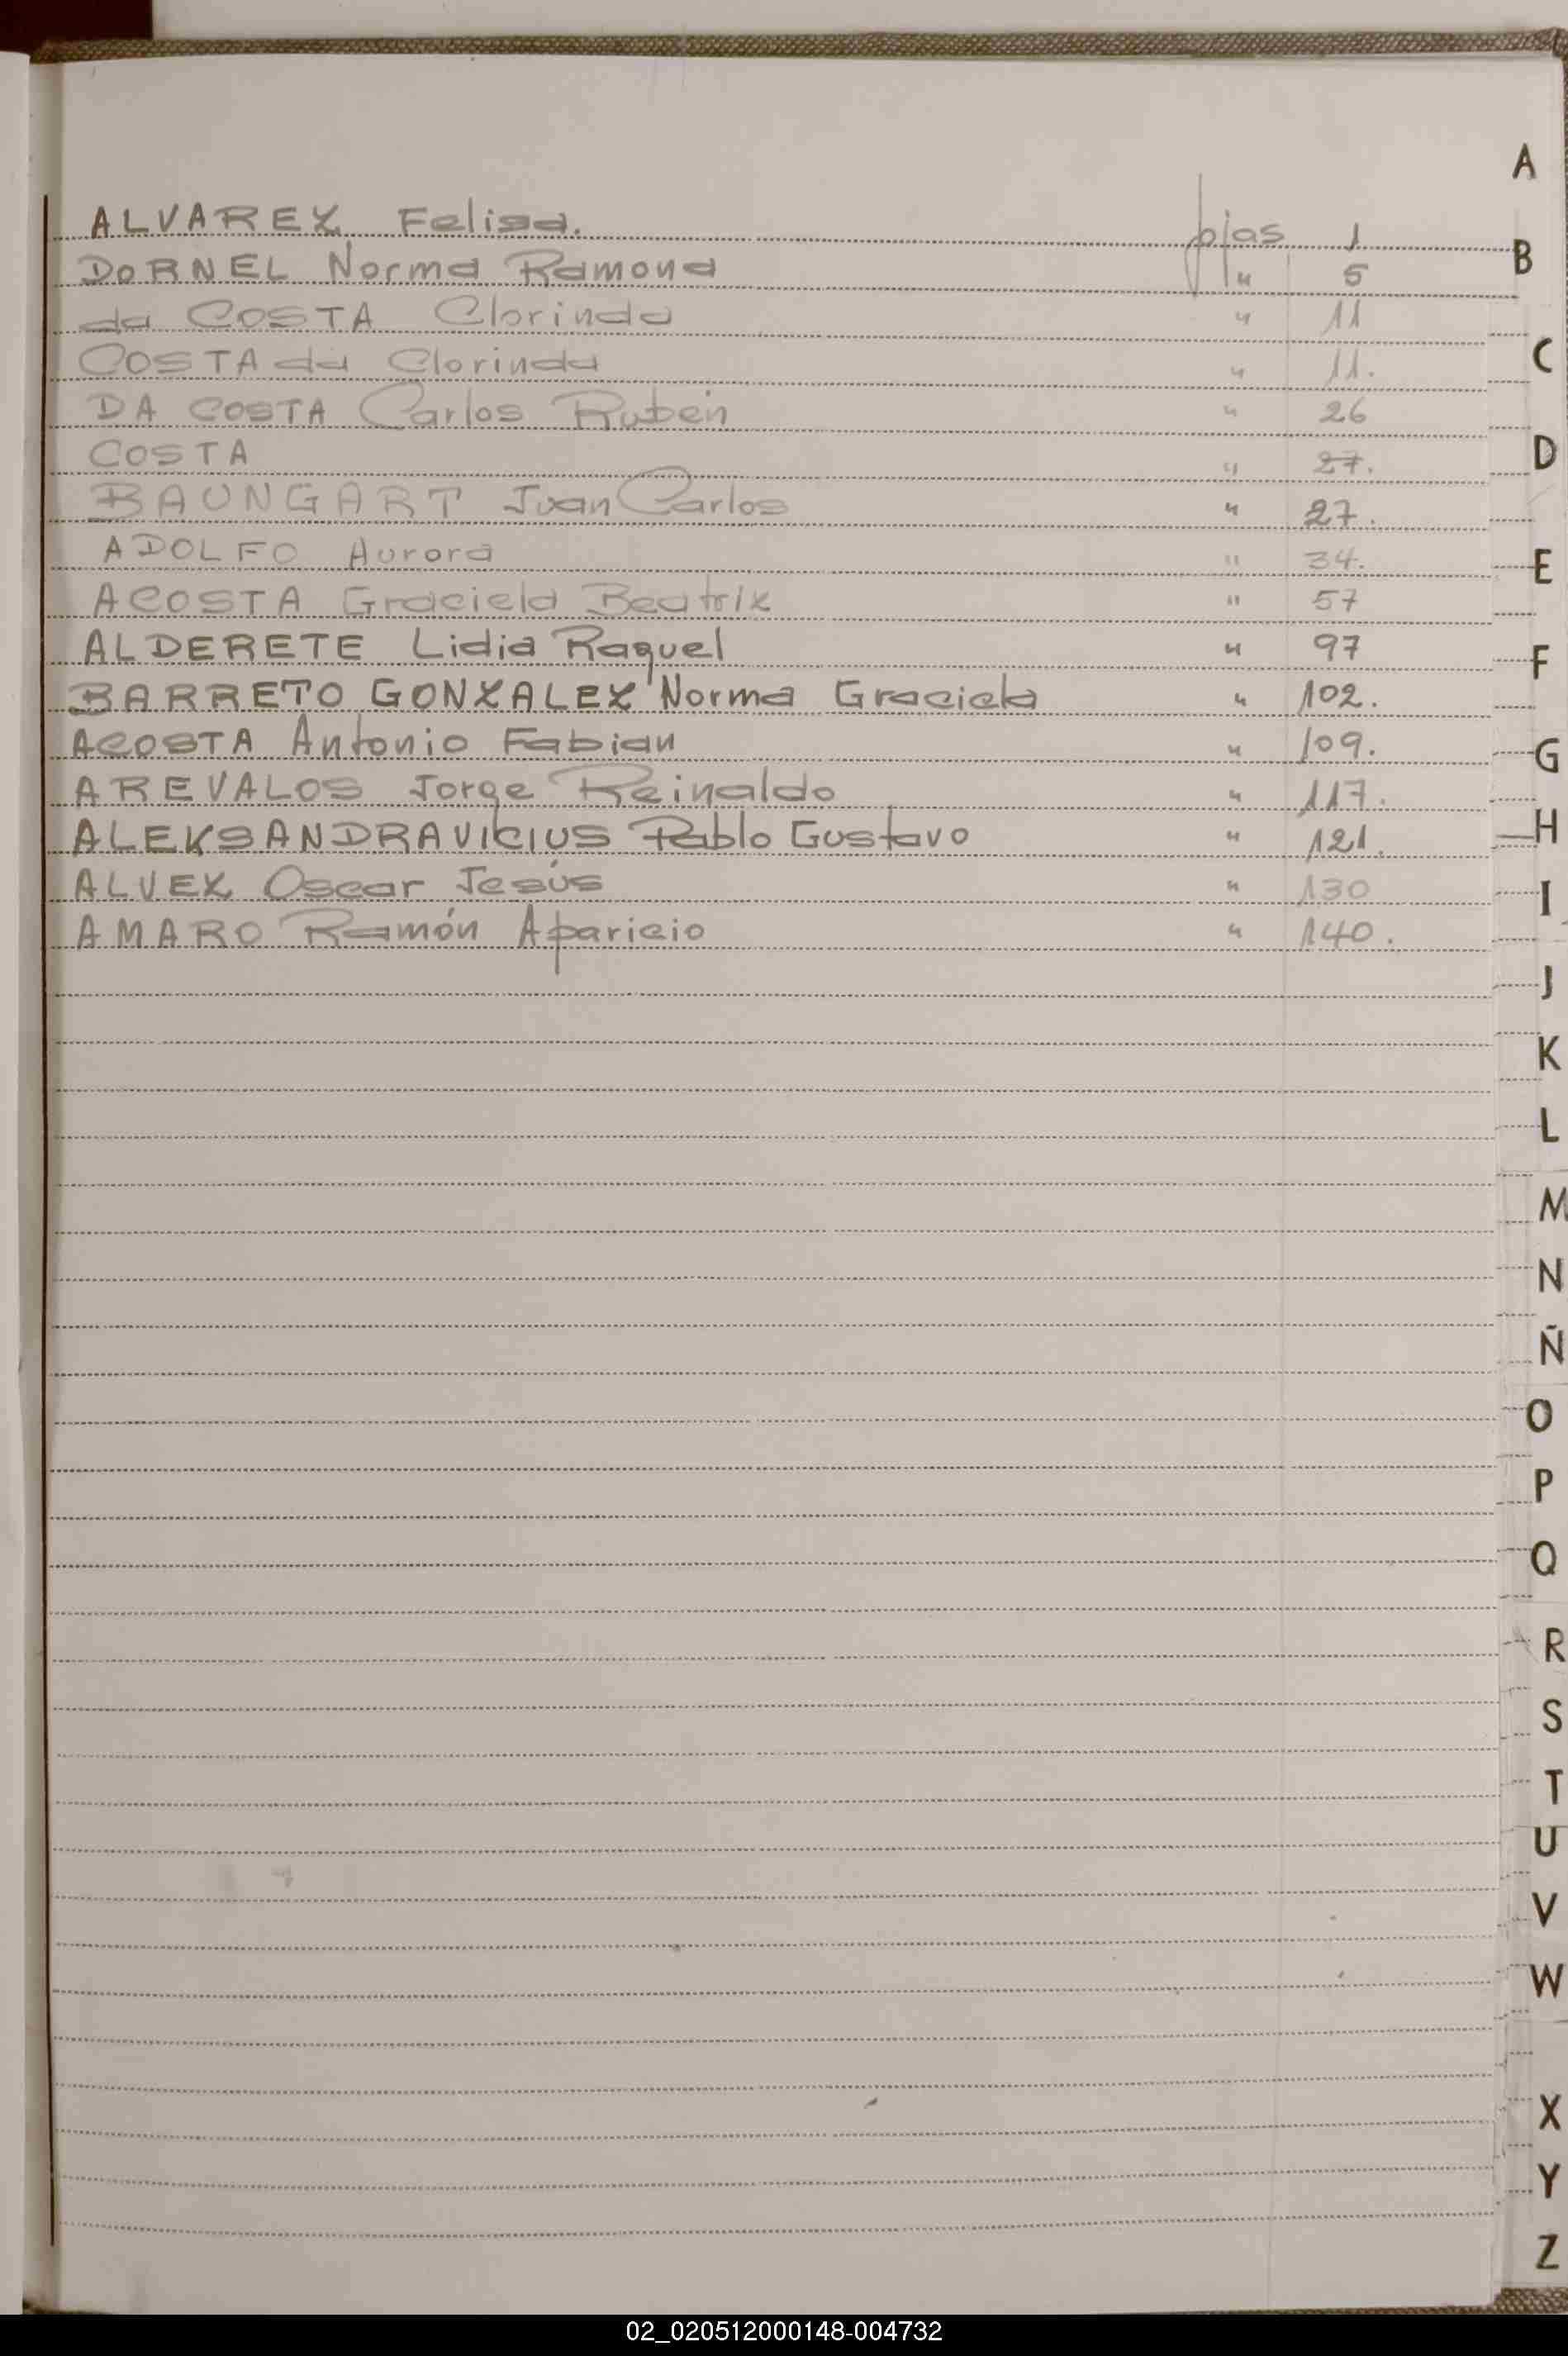 A
ALVAREZ Felisa. fojas 1
B
DORNEL Norma Ramona " 5
da COSTA Clorinda " 11
COSTA da Clorinda " 11.
C
DA COSTA Carlos Rubén " 26
COSTA " 27.
D
BAUNGART Juan Carlos " 27.
ADOLFO Aurora " 34.
E
ACOSTA Graciela Beatriz " 57
ALDERETE Lidia Raquel " 97
F
BARRETO GONZALEZ Norma Graciela " 102.
ACOSTA Antonio Fabian " 109.
G
AREVALOS Jorge Reinaldo " 117.
ALEKSANDRAVICIUS Pablo Gustavo " 121.
H
ALVEZ Oscar Jesús " 130
I
AMARO Ramón Aparicio " 140.
J
K
L
M
N
Ñ
O
P
Q
R
S
T
U
V
W
X
Y
Z
02_020512000148-004732